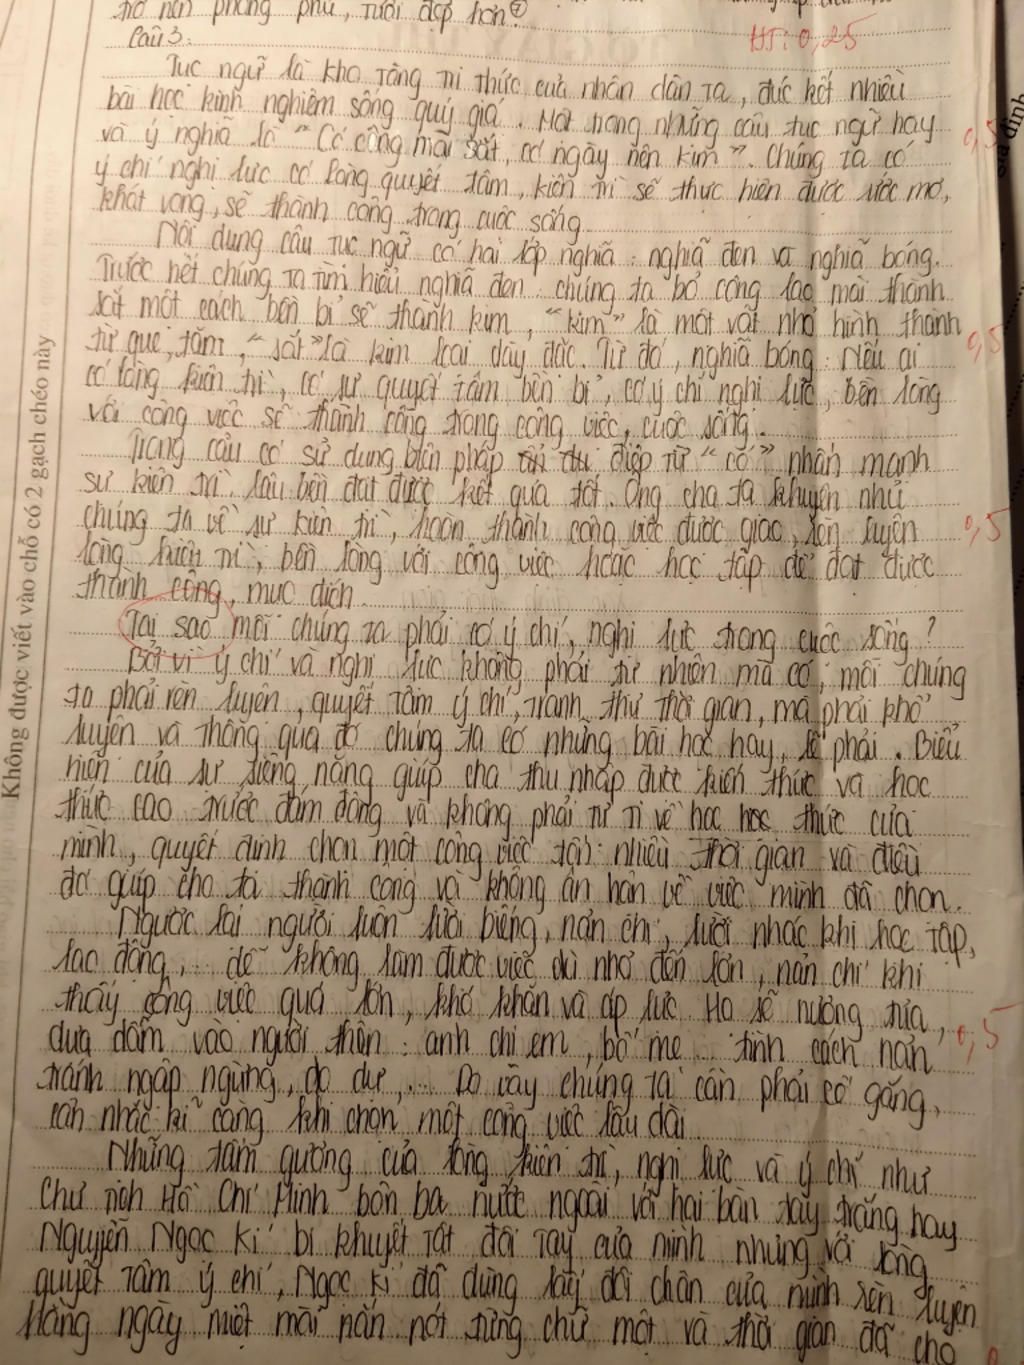 trở nên phong phú, tươi đẹp hơn?
Câu 3:
HT: 0,25
Tục ngữ là kho tàng tri thức của nhân dân ta, đúc kết nhiều
bài học kinh nghiệm sống quý giá. Một trong những câu tục ngữ hay
0,5
và ý nghĩa là "Có công mài sắt, có ngày nên kim". Chúng ta có
ý chí nghị lực có lòng quyết tâm, kiên trì sẽ thực hiện được ước mơ,
khát vọng, sẽ thành công trong cuộc sống.
Nội dung câu tục ngữ có hai lớp nghĩa: nghĩa đen và nghĩa bóng.
Trước hết chúng ta tìm hiểu nghĩa đen: chúng ta bỏ công lao mài thành
sắt một cách bền bỉ sẽ thành kim, "kim" là một vật nhỏ hình thành
0,5
từ que, tăm, "sắt" là kim loại dày đặc. Từ đó, nghĩa bóng: Nếu ai
có lòng kiên trì, có sự quyết tâm bền bỉ, có ý chí nghị lực, bền lòng
với công việc sẽ thành công trong công việc, cuộc sống.
Trong câu có sử dụng biện pháp điệp từ "có" nhấn mạnh
sự kiên trì lâu bền đạt được kết quả tốt. Ông cha ta khuyên nhủ
chúng ta về sự kiên trì, hoàn thành công việc được giao, rèn luyện
0,5
lòng kiên trì, bền lòng với công việc hoặc học tập để đạt được
thành công, mục đích.
Tại sao mỗi chúng ta phải có ý chí, nghị lực trong cuộc sống?
Bởi vì ý chí và nghị lực không phải tự nhiên mà có, mỗi chúng
ta phải rèn luyện, quyết tâm ý chí, tranh thủ thời gian, mà phải khổ
luyện và thông qua đó chúng ta có những bài học hay, lẽ phải. Biểu
hiện của sự siêng năng giúp cho thu nhập được kiến thức và học
thức cao trước đám đông và không phải tự ti về học học thức của
mình, quyết định chọn một công việc tốn nhiều thời gian và điều
đó giúp cho ta thành công và không ân hận về việc mình đã chọn.
Ngược lại người luôn lười biếng, nản chí, lười nhác khi học tập,
lao động,... dễ không làm được việc dù nhỏ đến lớn, nản chí khi
thấy công việc quá lớn, khó khăn và áp lực. Họ sẽ nương tựa,
0,5
dựa dẫm vào người thân: anh chị em, bố mẹ... tính cách nản
tránh ngập ngừng, do dự,... Do vậy chúng ta cần phải cố gắng,
cân nhắc kĩ càng khi chọn một công việc lâu dài.
Những tấm gương của lòng kiên trì, nghị lực và ý chí như
Chủ tịch Hồ Chí Minh bôn ba nước ngoài với hai bàn tay trắng hay
Nguyễn Ngọc Kí bị khuyết tật đôi tay của mình nhưng với lòng
quyết tâm ý chí, Ngọc Kí đã dùng lấy đôi chân của mình rèn luyện
Hằng ngày miệt mài nắn nót từng chữ một và thời gian đã cho
Không được viết vào chỗ có 2 gạch chéo này